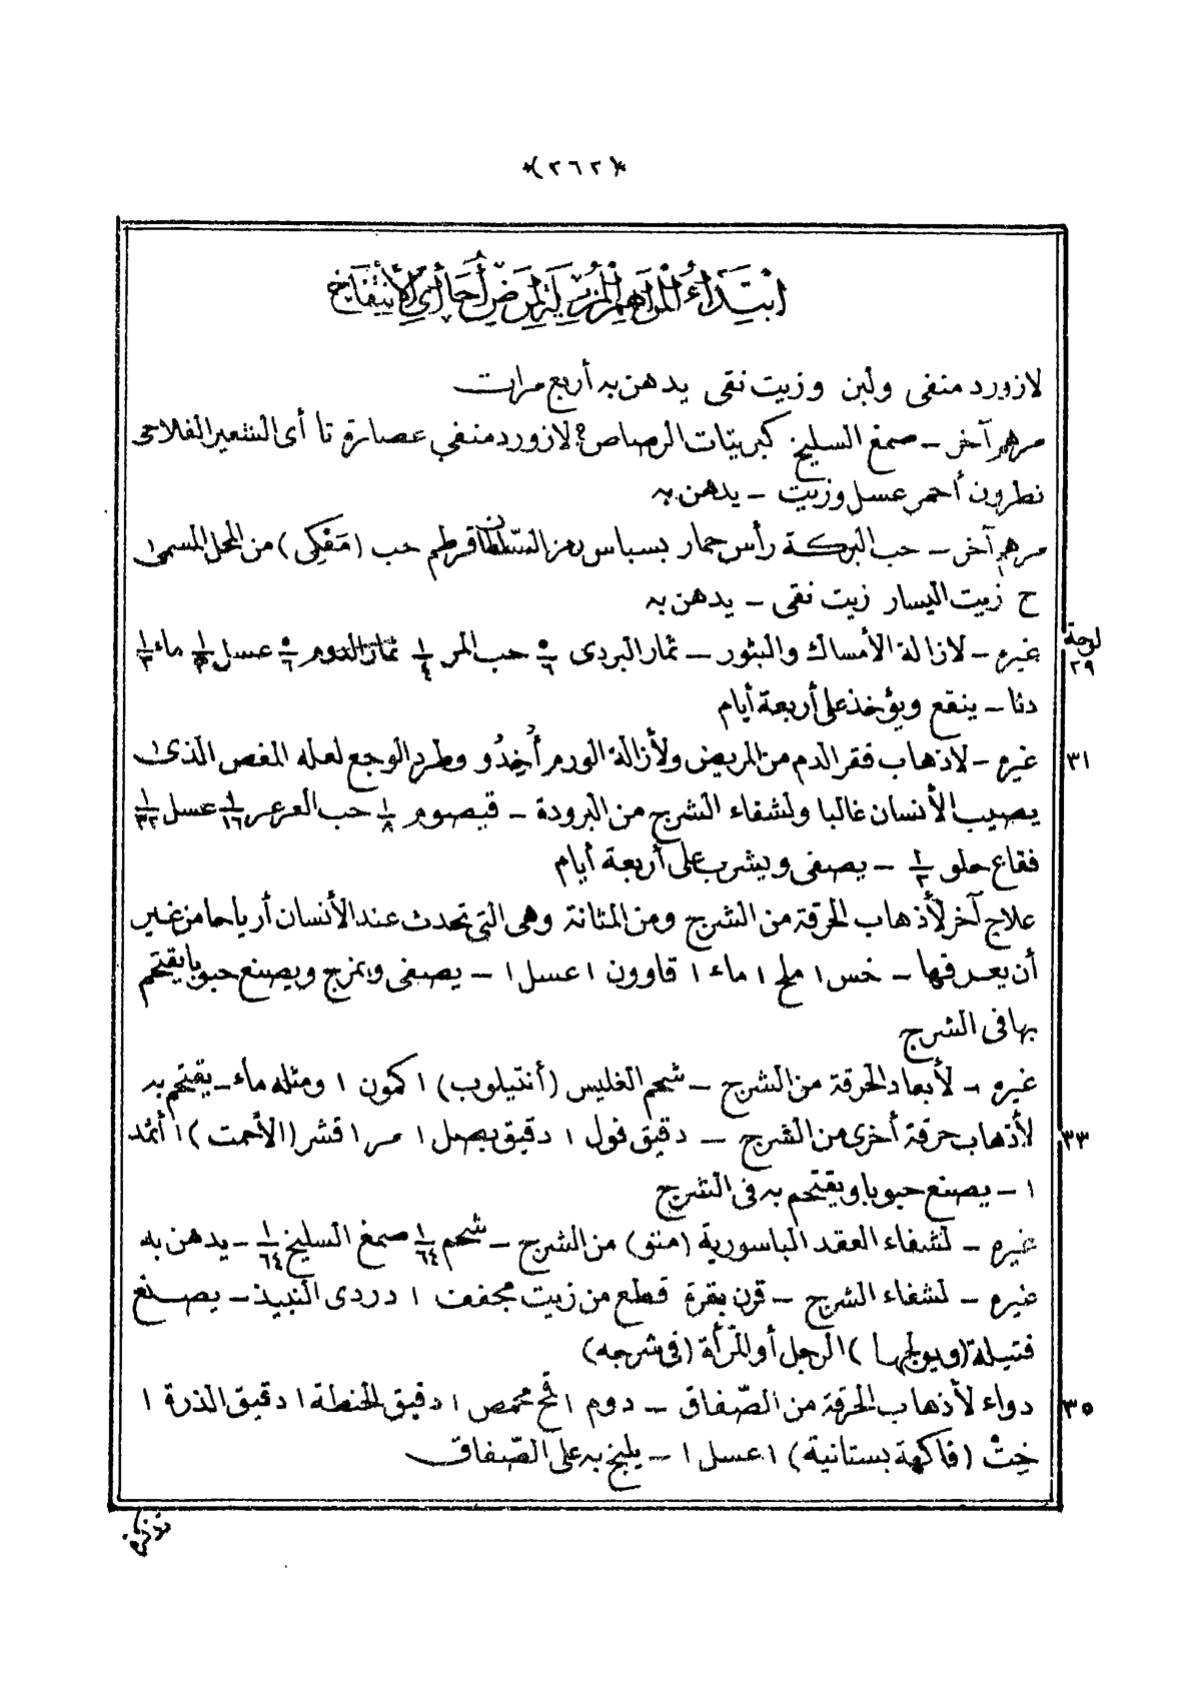 *(٢٦٢)*
ابتداء المراهم المزيلة لمرض أحا أى الأنتفاخ
لازورد منفى ولبن وزيت نقى يدهن به أربع مرات
مرهم آخر – صمغ السليخ كبريتات الرصاص؟ لازورد منفي عصارة تا أى الشعير الفلاحى
نطرون أحمر عسل وزيت – يدهن به
مرهم آخر – حب البركة رأس حمار بسباس السلطان قرطم حب (مَفكِى) من المحل المسمى
ح زيت اليسار زيت نقى – يدهن به
لوحة ٢٩
غيره – لازالة الأمساك والبثور – ثمار البردى ٥/٦ حب المر ١/٤ ثمار الدوم ٥/٦ عسل ماء ١/٣
دنا – ينقع ويؤخذ على أربعة أيام
٣١ غيره – لاذهاب فقر الدم من المريض ولأزالة الورم أُخِدُو وطرد الوجع لعله المغص الذى
يصيب الأنسان غالبا ولشفاء الشرج من البرودة – قيصوم ١/٨ حب العرعر ١/١٦ عسل ١/٣٢
فقاع حلو ١/٣ – يصفى ويشرب على أربعة أيام
علاج آخر لأذهاب الحرقة من الشرج ومن المثانة وهى التى تحدث عند الأنسان أرياحا من غير
أن يعرفها – خس ١ ملح ١ ماء ١ قاوون ١ عسل ١ – يصفى ويمزج ويصنع حبوبا يقتحم
بها فى الشرج
غيره – لأبعاد الحرقة من الشرج – شحم الغليس (أنتيلوب) ١ كمون ١ ومثله ماء – يقتحم به
٣٣ لأذهاب حرقة أخرى من الشرج – دقيق فول ١ دقيق بصل ١ مر ١ قشر (الأحمت) ١ أثمد
١ – يصنع حبوبا ويقتحم به فى الشرج
غيره – لشفاء العقد الباسورية (منتو) من الشرج – شحم ١/٦٤ صمغ السليخ ١/٦٤ – يدهن به
غيره – لشفاء الشرج – قرن بقرة قطع من زيت مجفف ١ دردى النبيذ – يصنع
فتيلة (ويولجها) الرجل أو المرأة (فى شرجه)
٣٥ دواء لأذهاب الحرقة من الصّفاق – دوم ١ قمح محمص ١ دقيق الحنطة ١ دقيق الذرة ١
خِتْ (فاكهة بستانية) ١ عسل ١ – يلبخ به على الصّفاق
تذكرة